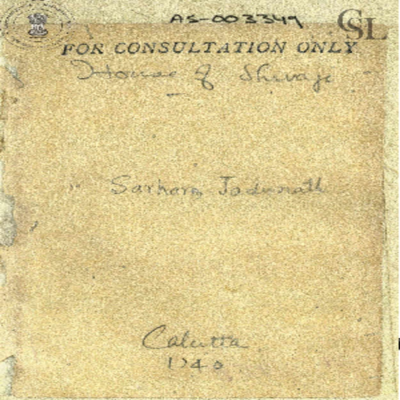 AS-003349
CSL
FOR CONSULTATION ONLY
House of Shivaji
Sarkar, Jadunath
Calcutta
1940